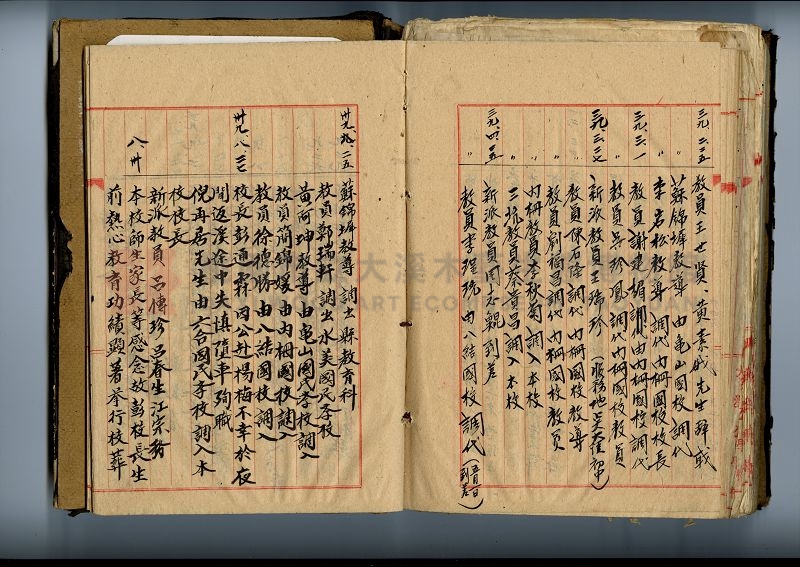 三九、二、二五 教員王世賢 黃素娥先生辞职
〃 蘇錦墀教導 由龜山國校調代
〃 李君松教導 調代內柵國校校長
三九、三、一 教員謝建媚調 由內柵國校調代
〃 教員吳珍鳳調代內柵國校教員
三九、三、二七 新派教員王瑞珍
〃 教員陳石條調代 內柵國校教導
〃 教員劉福昌調代 內柵國校教員
〃 內柵教員李秋菊 調入本校
〃 三坑教員蔡育昌 調入本校
三九、四、二五 新派教員周志鯤 到差
〃 教員李理統 由八結國校 調代(五月一日到差)
卅九、九、二五 蘇錦墀教導 調出縣教育科
教員郭瑞軒 調出水美國民学校
黃阿坤教導 由龜山國民学校調入
教員簡錦媛 由內柵國校調入
教員徐德勝 由八結國校調入
卅九、八、二七 校長彭通霖 因公赴楊梅不幸於夜
間返溪途中失慎墮車殉職
倪再居先生 由六合國民学校調入本
校校長
新派教員 呂傳珍 呂春生 江宗
八、卅 本校師生家長等感念故彭校長生
前熱心教育功績顯著举行校葬